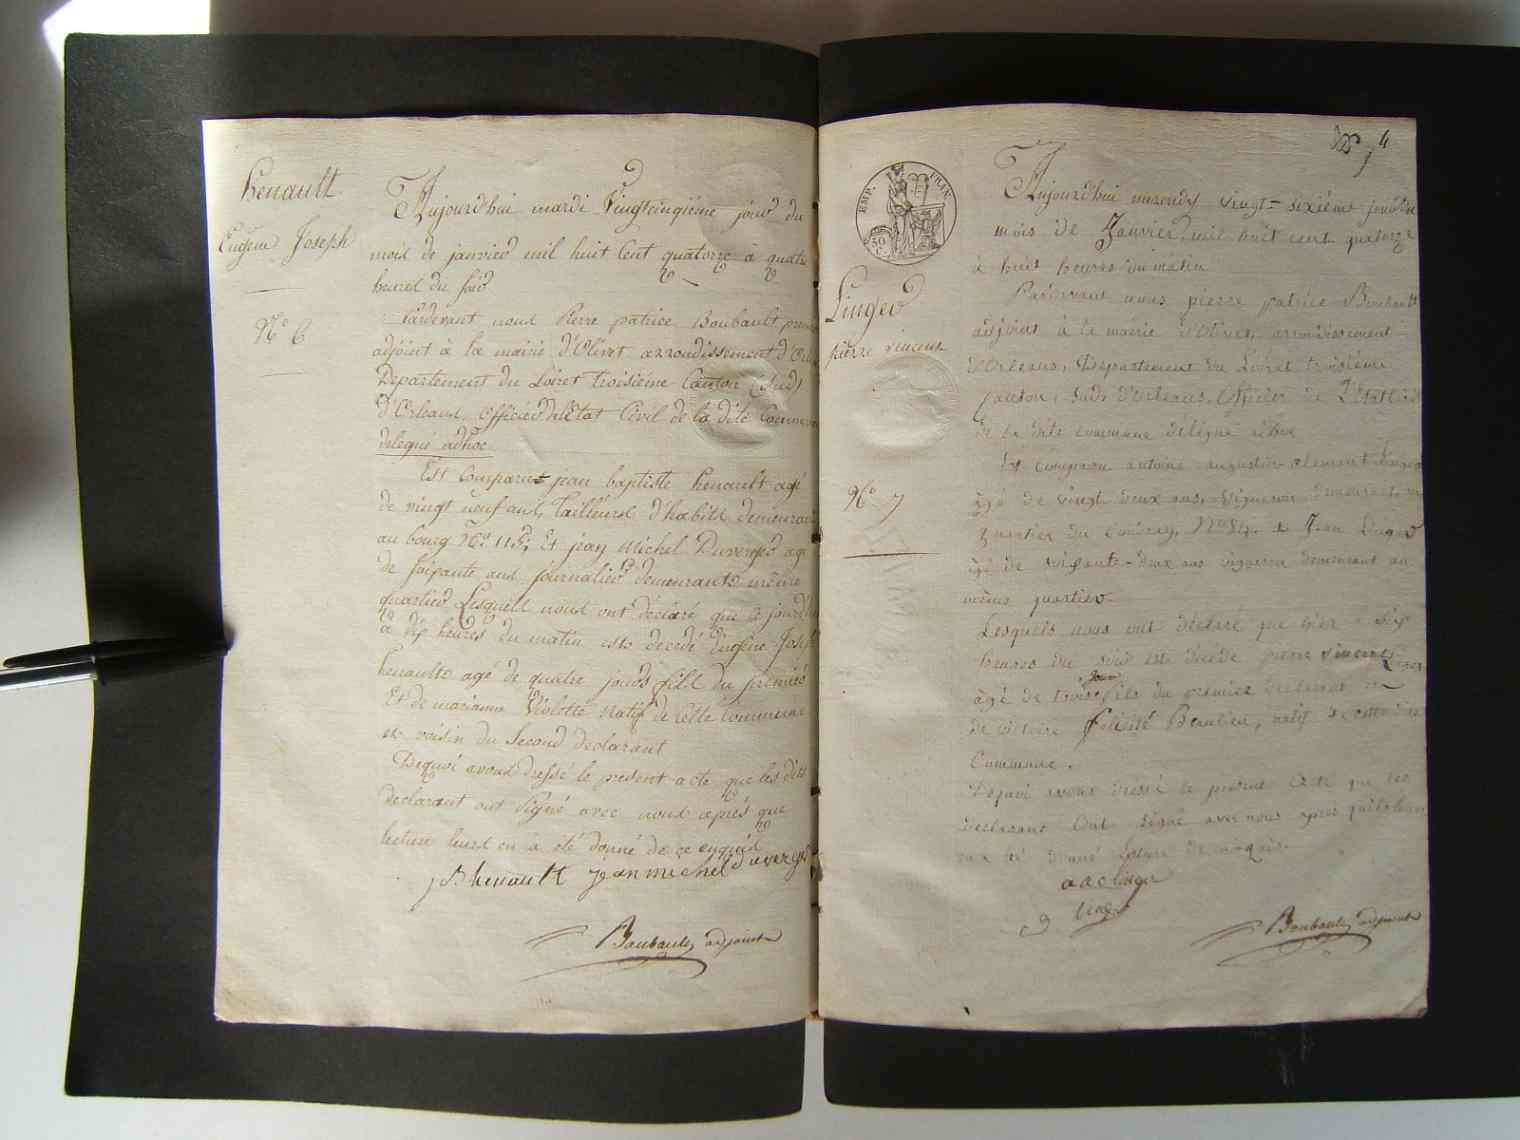 henault
Eugene Joseph
N.o 6
Aujourd'hui mardi Vingtcinqiéme jour du
mois de janvier mil huit Cent quatorze à quatre
heures du soir
Pardevant nous Pierre patrice Boubault premier
adjoint à la mairie d'Olivet arrondissement d'Orleans
Département du Loiret troisiéme Canton (Sud)
d'Orleans, officier del'état Civil de la dite Commune
delegué adhoc
Est Comparut jean baptiste henault agé
de vingt neuf ans, Tailleurs d'habits demeurant
au bourg N.o 115, Et jean Michel Duverger agé
de soixante ans journalier demeurants même
quartier Lesquels nous ont déclaré que ce jourd'hui
à dix heures du matin est decedé Eugéne Joseph
henault agé de quatre jours fils du premier
Et de marianne Violette natif de cette Commune
et voisin du Second declarant
Dequoi avons dressé le present acte que les dits
declarant ont signé avec nous après que
lecture leurs en à été donné de ce enquis
JB henault jean michel duverger
Boubault adjoint
4
EMP. FRAN.
50
C.
Linger
pierre vincent
N.o 7
Aujourd'hui mercredy vingt-sixiéme jour du
mois de Janvier, mil huit cent quatorze
à huit heures du matin
Pardevant nous pierre patrice Boubault
adjoint à la mairie d'Olivet, arrondissement
d'Orleans, Département du Loiret troisiéme
canton, Sud d'Orleans, officier de L'Etat Civil
de la dite commune délégué adhoc
Est comparu antoine augustin clement Linger
âgé de vingt deux ans, vigneron demeurant
quartier du Couvray, N.o 84. & Jean Linger
âgé de soixante-deux ans vigneron demeurant au
même quartier
Lesquels nous ont déclaré que hier à six
heures du soir est décédé pierre vincent Linger
jours
âgé de trois, fils du premier declarant &
de victoire félicité Beaulieu, natif de cette
Commune.
Dequoi avons dressé le présent acte que les
declarant ont signé avec nous après qu'il leur
en a été donné lecture de ce enquis
a a c linger
linger
Boubault adjoint